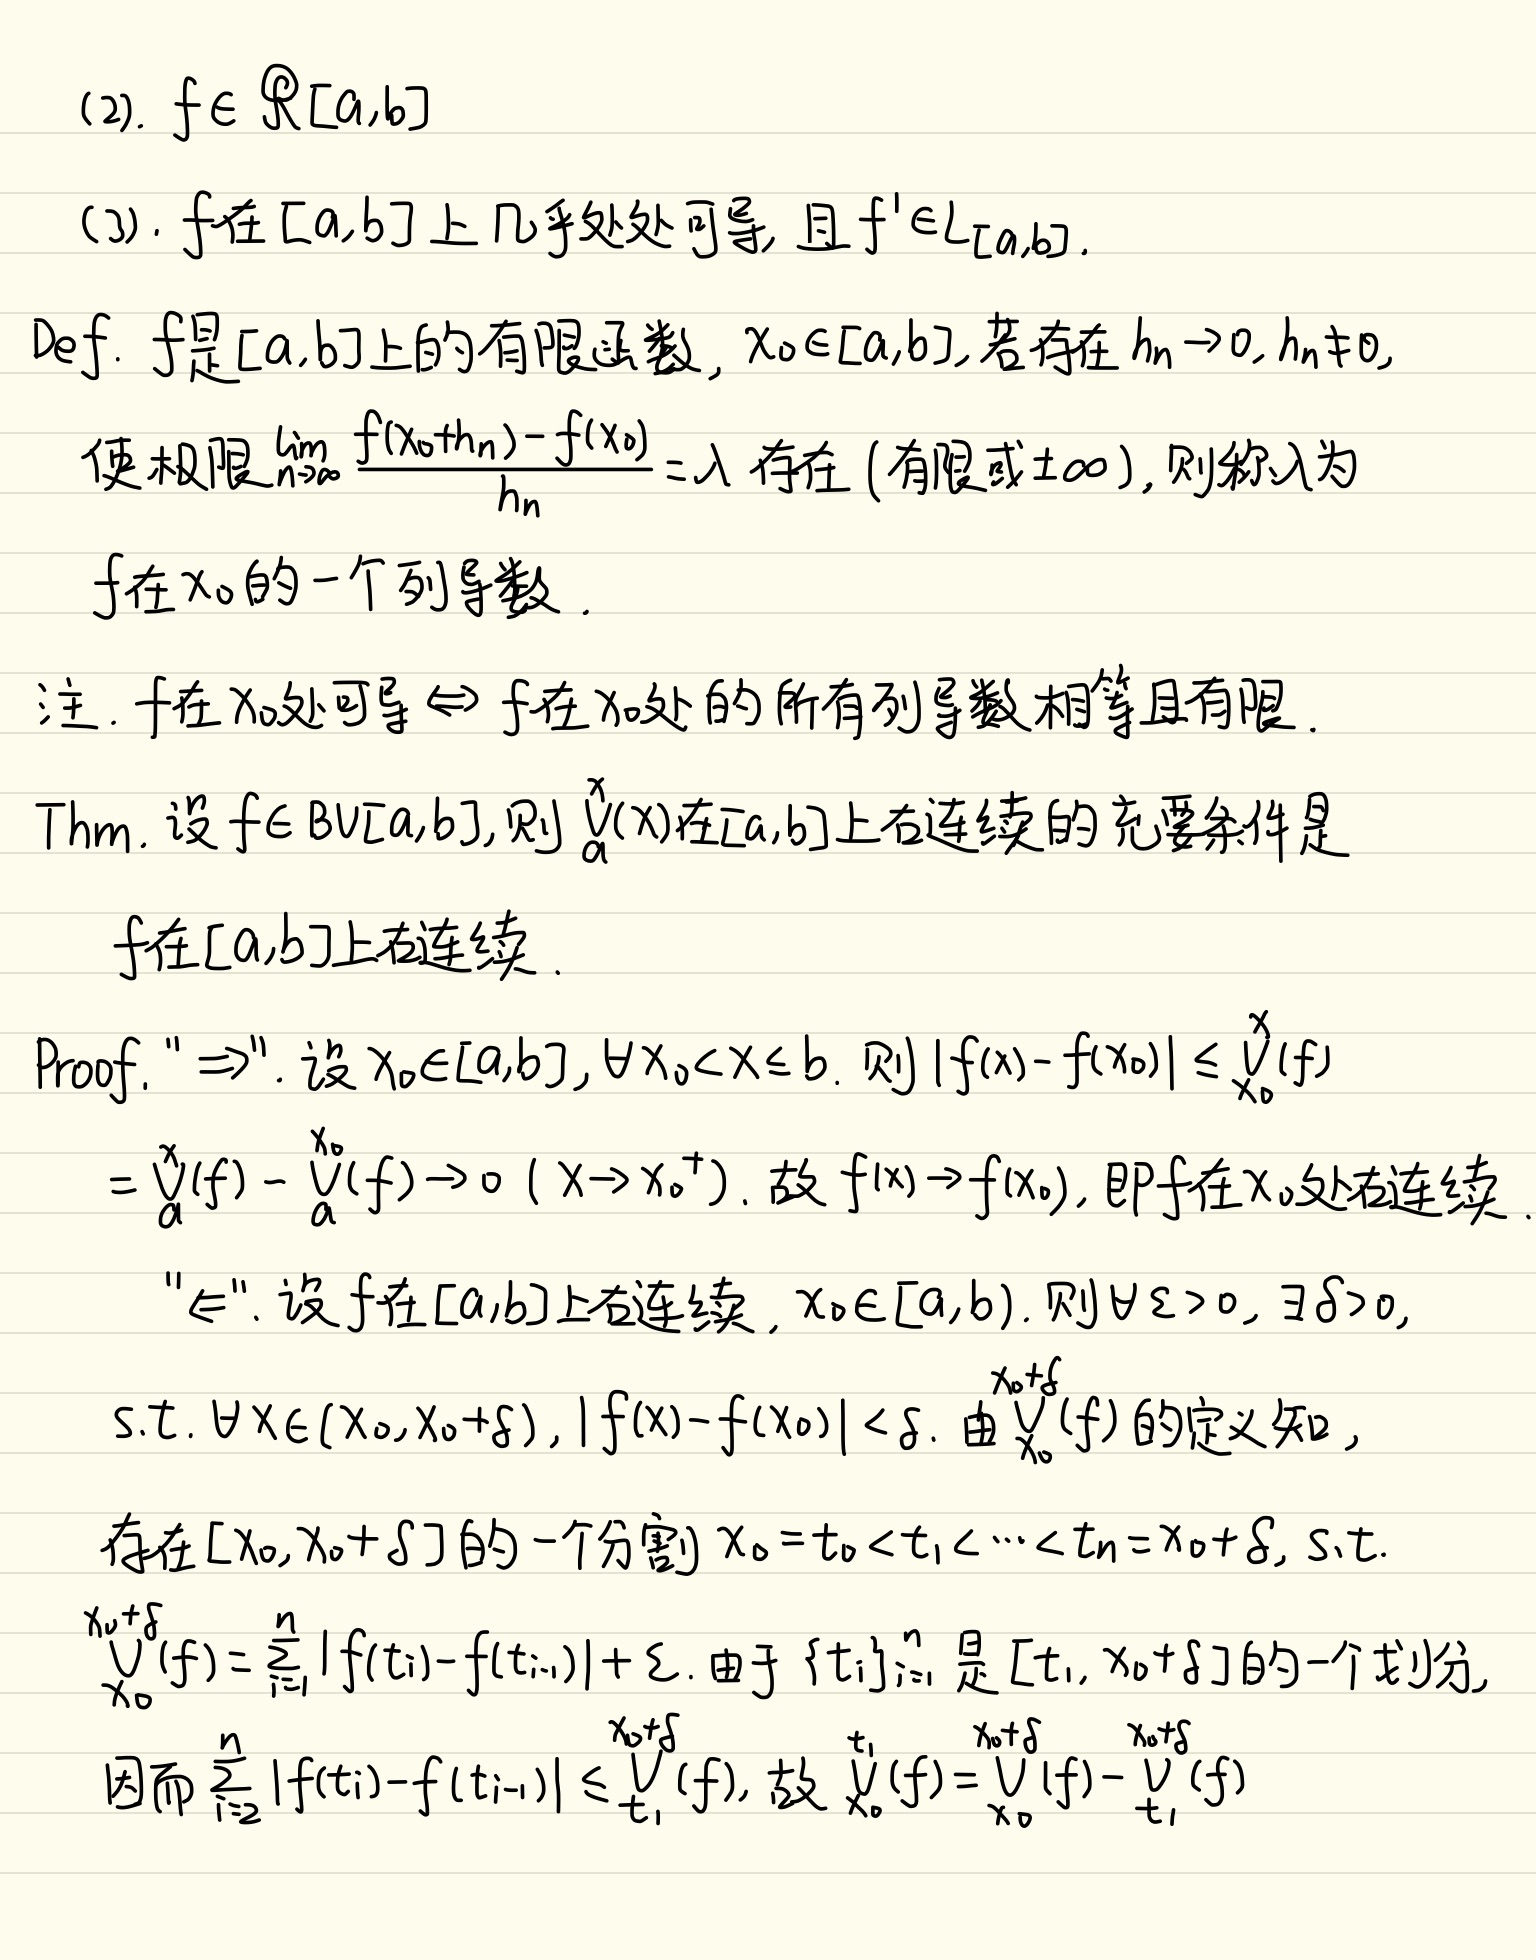 (2). f∈ℛ[a,b]
(3). f在[a,b]上几乎处处可导, 且f'∈L_{[a,b]}.
Def. f是[a,b]上的有限函数, x₀∈[a,b], 若存在 hₙ→0, hₙ≠0,
使极限 lim_{n→∞} \frac{f(x₀+hₙ)-f(x₀)}{hₙ} = λ 存在 (有限或±∞), 则称λ为
f在x₀的一个列导数.
注. f在x₀处可导 ⇔ f在x₀处的所有列导数相等且有限.
Thm. 设f∈BV[a,b], 则 \bigvee_a^x(x)在[a,b]上右连续的充要条件是
f在[a,b]上右连续.
Proof. "⇒". 设x₀∈[a,b], ∀x₀<x≤b. 则 |f(x)-f(x₀)| ≤ \bigvee_{x₀}^x(f)
= \bigvee_a^x(f) - \bigvee_a^{x₀}(f) → 0 (x→x₀⁺). 故 f(x)→f(x₀), 即f在x₀处右连续.
"⇐". 设f在[a,b]上右连续, x₀∈[a,b). 则∀ε>0, ∃δ>0,
s.t. ∀x∈(x₀, x₀+δ), |f(x)-f(x₀)|<δ. 由 \bigvee_{x₀}^{x₀+δ}(f) 的定义知,
存在[x₀, x₀+δ]的一个分割 x₀=t₀<t₁<…<tₙ=x₀+δ, s.t.
\bigvee_{x₀}^{x₀+δ}(f) = \sum_{i=1}^n |f(t_i)-f(t_{i-1})| + ε. 由于 {t_i}_{i=1}^n 是 [t₁, x₀+δ]的一个划分,
因而 \sum_{i=2}^n |f(t_i)-f(t_{i-1})| ≤ \bigvee_{t₁}^{x₀+δ}(f), 故 \bigvee_{x₀}^{t₁}(f) = \bigvee_{x₀}^{x₀+δ}(f) - \bigvee_{t₁}^{x₀+δ}(f)